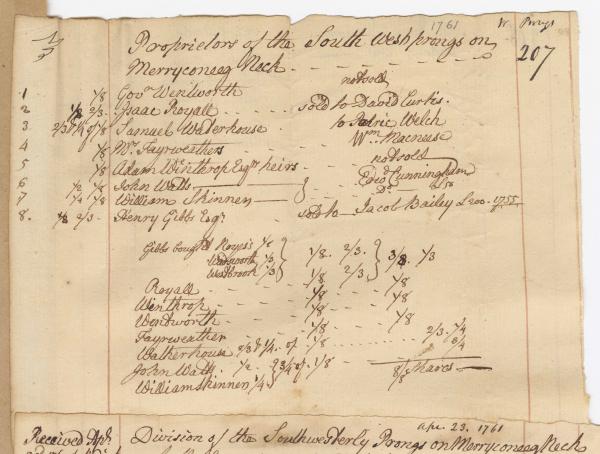 1761 W. Prongs
Proprietors of the South West prongs on 207
Merryconaeg Neck
1 1/8 Gov.r Wentworth not sold
2 1/8 2/3 Isaac Royall sold to David Curtis.
3 2/3 & 1/4 of 1/8 Samuel Waterhouse to Patric Welch
4 1/8 Mr. Fayrweathers Wm. Macneese
5 1/8 Adam Winthrop Esqrs heirs not sold
6 1/2 1/8 John Watts Cunningham
7 1/4 1/8 William Skinner Do
8. 1/8 2/3 Henry Gibbs Esqr sold to Jacob Bailey £200. 1755
Gibbs bought Royes's 1/8
Wadsworth 1/3 1/8. 2/3. 3/8 1/3
Westbrook 1/3 1/8 2/3
Royall 1/8 1/8
Winthrop 1/8 1/8
Wendworth 1/8 1/8
Fayrweather 1/8
Watherhouse 2/3 & 1/4 of 1/8 2/3. 1/4
John Watts 1/2 3/4 of 1/8
William Skinner 1/4 8/8 Shares
apr. 23. 1761
Received Apr
Division of the Southwesterly Prongs on Merryconaeg Neck